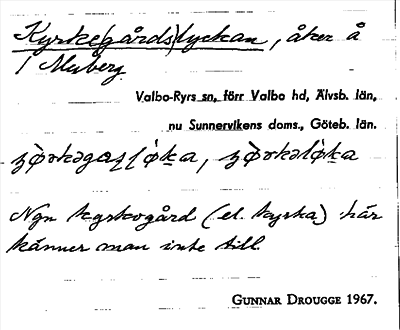 Kyrke(gårds)lyckan, åker å
1 Muberg
Valbo-Ryrs sn, förr Valbo hd, Älvsb. län,
nu Sunnervikens doms., Göteb. län.
Ngn kyrkogård (el. kyrka) här
känner man inte till.
GUNNAR DROUGGE 1967.